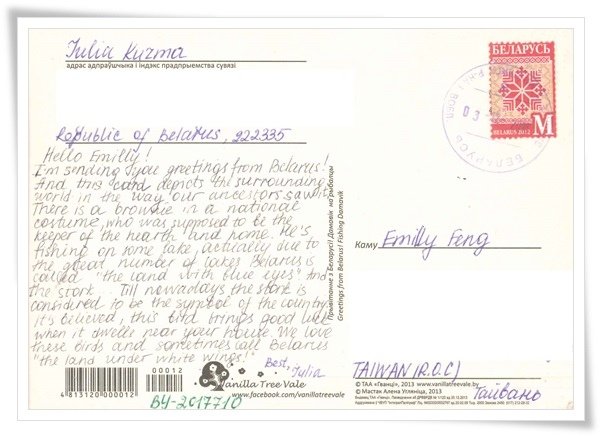 Iulia Kuzma
адрас адпраўшчыка і індэкс прадпрыемства сувязі
Republic of Belarus, 222335
Hello Emilly!
I'm sending you greetings from Belarus!
And this card depicts the surrounding
world in the way our ancestors saw it.
There is a brownie in a national
costume, who was supposed to be the
keeper of the hearth and home. He's
fishing on some lake, actually due to
the great number of lakes Belarus is
called "the land with blue eyes" And
the stork. Till nowadays the stork is
considered to be the symbol of the country
It's believed, this bird brings good luck
when it dwells near your house. We love
these birds and sometimes call Belarus
"the land under white wings!"
Best,
Iulia
БЕЛАРУСЬ
BELARUS 2012
M
03
БЕЛАРУСЬ
Прывітанне з Беларусі! Дамавік на рыбалцы
Greetings from Belarus! Fishing Damavik
Каму Emilly Feng
TAIWAN (R.O.C)
Тайвань
00012
4 813120 000012
Vanilla Tree Vale
www.facebook.com/vanillatreevale
BY-2017710
© ТАА «Гванці», 2013 www.vanillatreevale.by
© Мастак Алена Угляніца, 2013